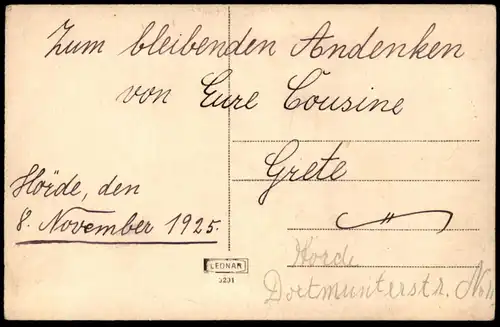 Zum bleibenden Andenken
von Eure Cousine
Grete
Hörde, den
8. November 1925.
LEONAR
3231
Hörde
Dortmunterstr. No